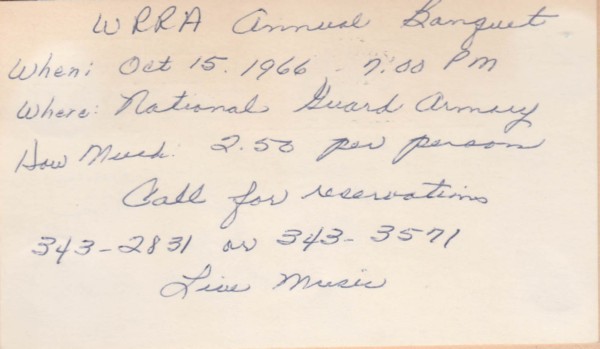 WRRA Annual Banquet
When: Oct 15. 1966 7:00 PM
Where: National Guard Armory
How Much: 2.50 per person
Call for reservations
343-2831 or 343-3571
Live Music